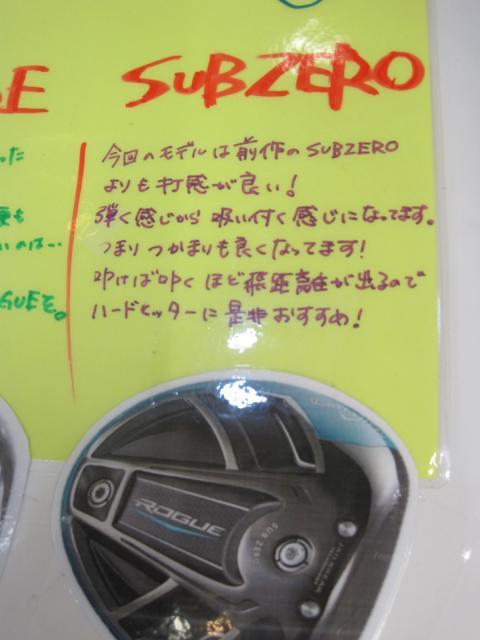 SUBZERO
今回のモデルは前作のSUBZERO
よりも打感が良い!
弾く感じから吸い付く感じになってます。
つまりつかまりも良くなってます!
叩けば叩くほど飛距離が出るので
ハードヒッターに是非おすすめ!
った
いのは…
GUEを。
ROGUE
SUB ZERO